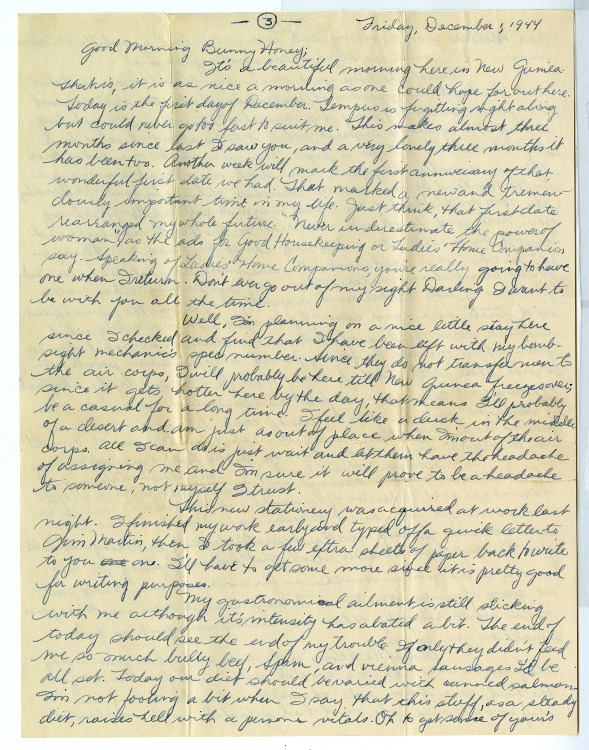 - 3 -
Friday, December 1, 1944
Good Morning Bunny Honey;
It's a beautiful morning here in New Guinea.
That is, it is as nice a morning as one could hope for out here.
Today is the first day of December. Tempus is fugitting right along
but could never go too fast to suit me. This makes almost three
months since last I saw you, and a very lonely three months it
has been too. Another week will mark the first anniversary of that
wonderful first date we had. That marked a new and tremen-
dously important time in my life. Just think, that first date
rearranged my whole future. "Never underestimate the power of
woman" as the ads for Good Housekeeping or Ladies' Home Companion
say. Speaking of Ladies' Home Companions you're really going to have
one when I return. Don't ever go out of my sight Darling I want to
be with you all the time.
Well, I'm planning on a nice little stay here
since I checked and find that I have been left with my bomb-
sight mechanic's spec number. Since they do not transfer men to
the air corps, I will probably be here till New Guinea freezes over;
since it gets hotter here by the day, that means I'll probably
be a casual for a long time. I feel like a duck in the middle
of a desert and am just as out of place when I'm out of the air
corps. All I can do is just wait and let them have the headache
of assigning me and I'm sure it will prove to be a headache
to someone, not myself I trust.
This new stationery was acquired at work last
night. I finished my work early and typed off a quick letter to
Jim Martin, then I took a few extra sheets of paper back to write
to you one. I'll have to get some more since it is pretty good
for writing purposes.
My gastronomical ailment is still sticking
with me although its intensity has abated a bit. The end of
today should see the end of my trouble. If only they didn't feed
me so much bully beef, Spam, and vienna sausages I'd be
all set. Today our diet should be varied with canned salmon.
I'm not fooling a bit when I say that this stuff, as a steady
diet, raises hell with a persons vitals. Oh to get some of your's